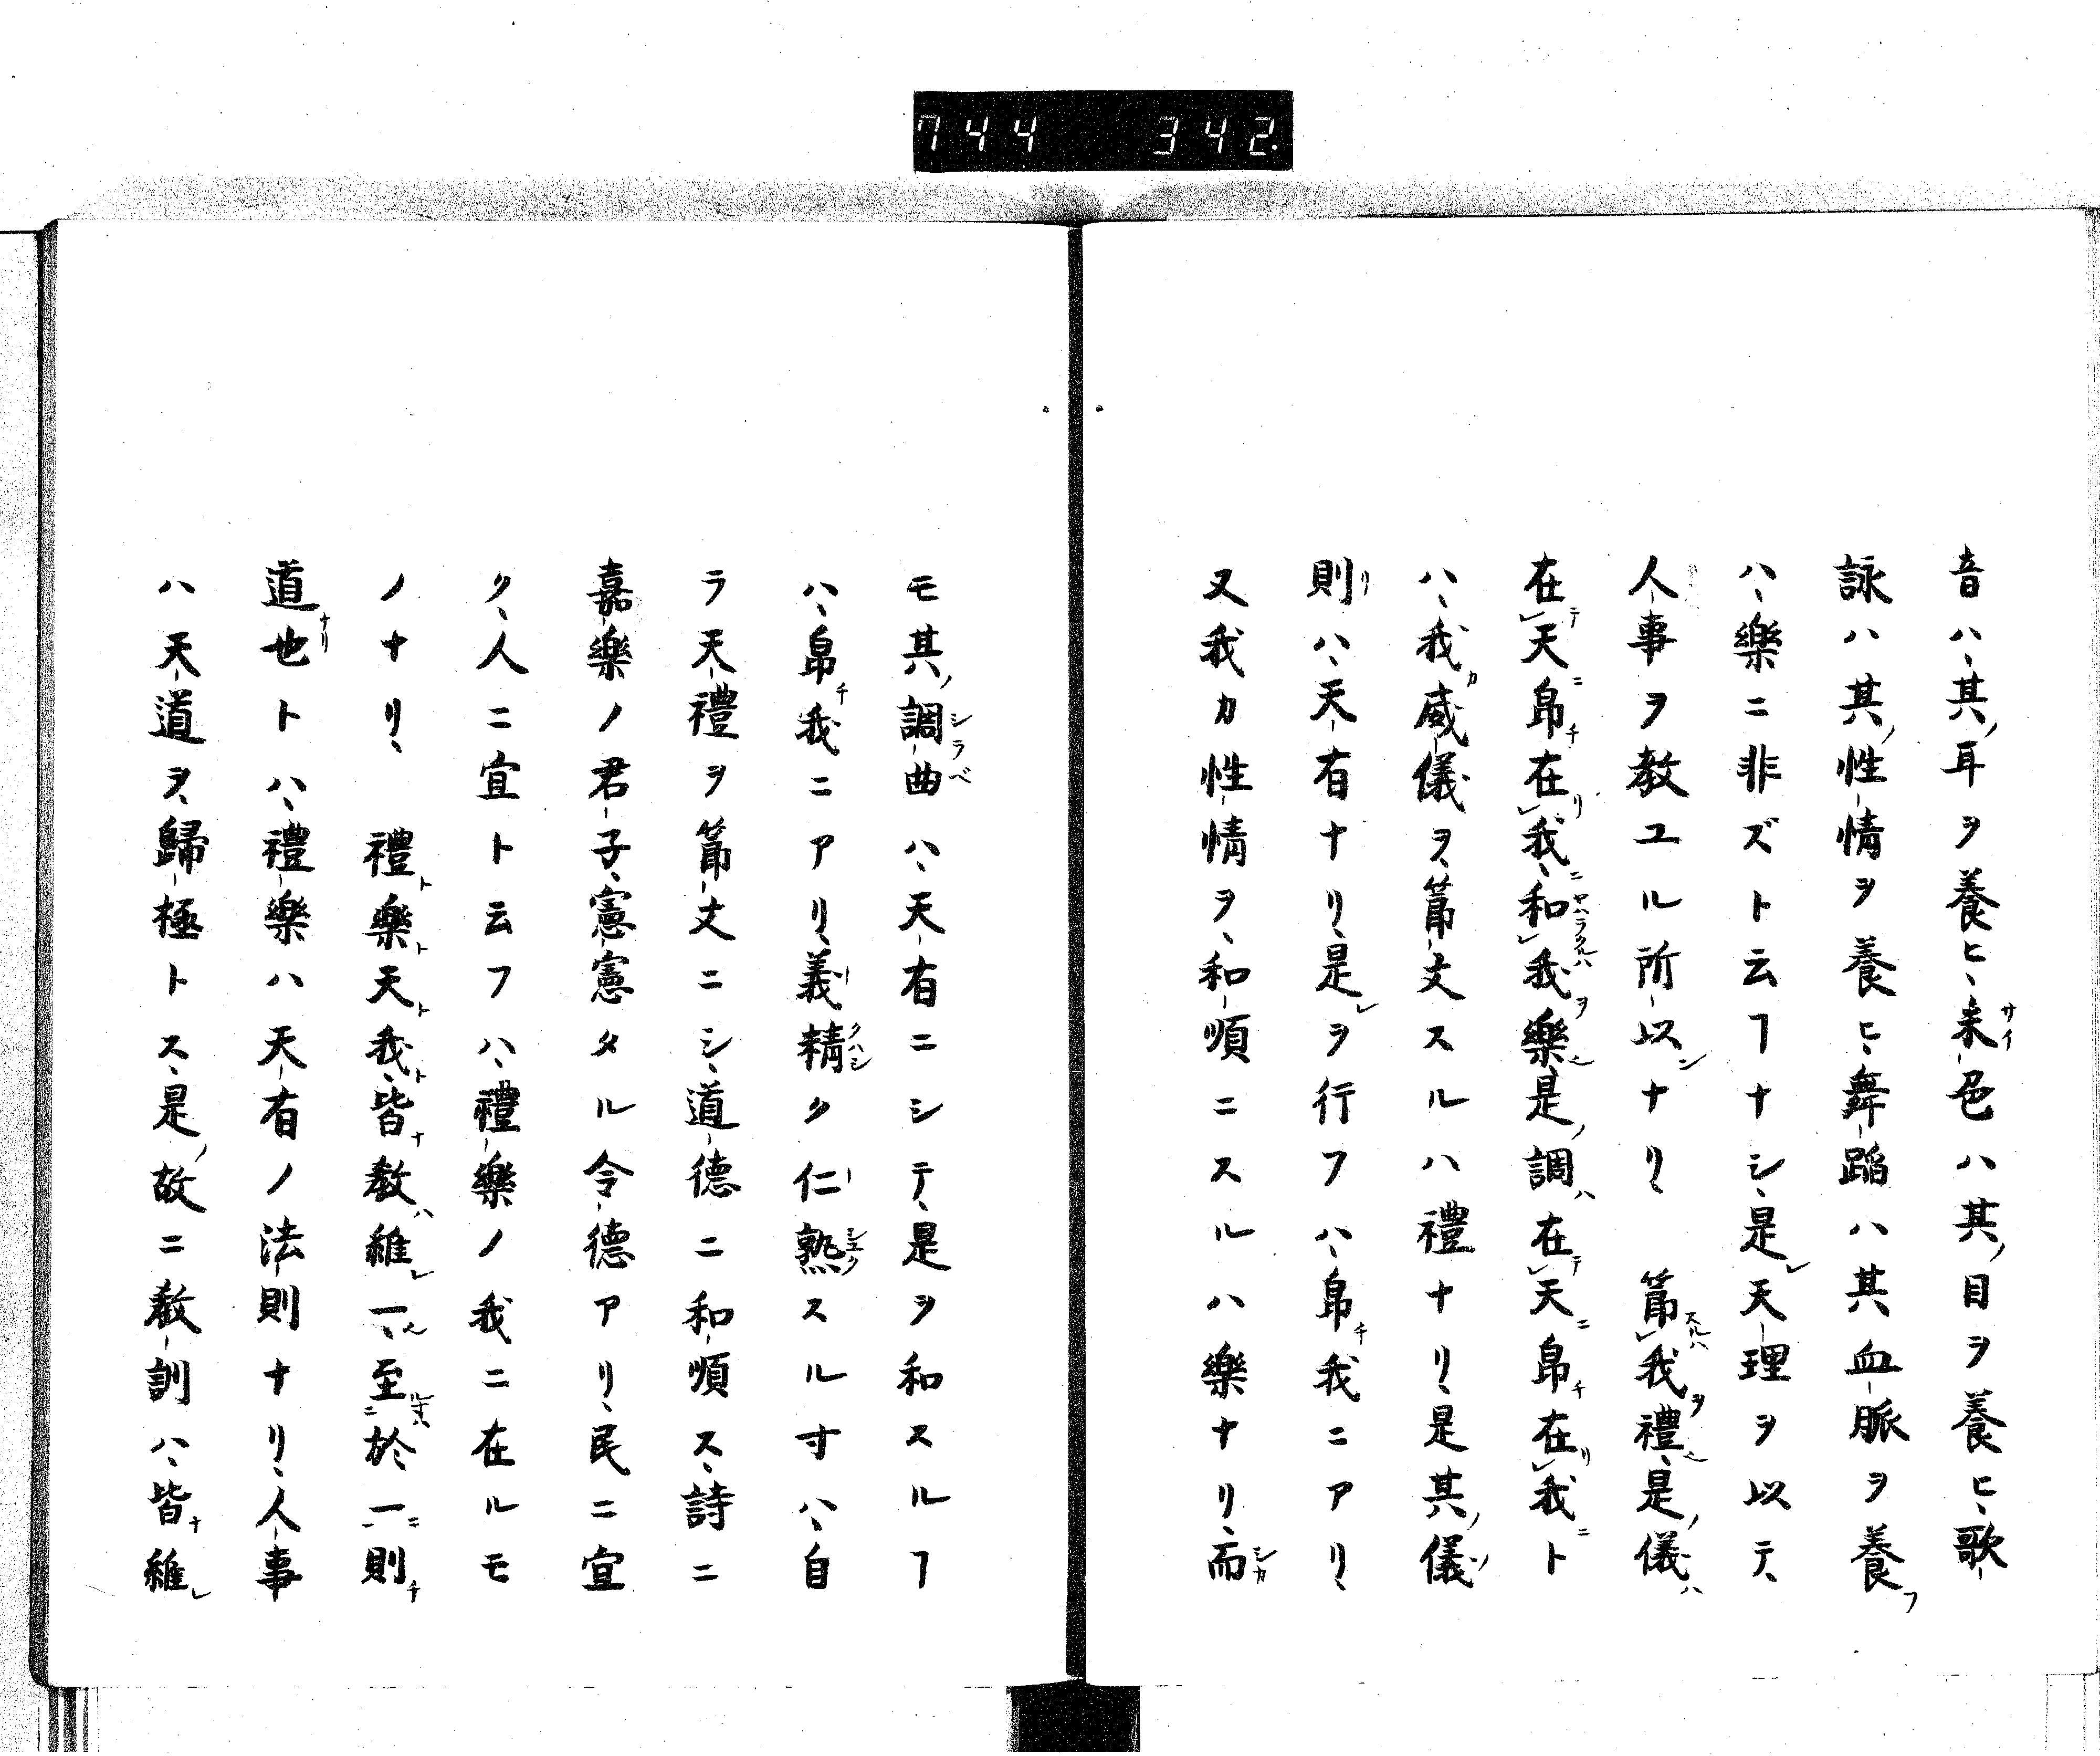 744 342.
音ハ、其ノ耳ヲ養ヒ、来色ハ其ノ目ヲ養ヒ、歌
詠ハ其ノ性情ヲ養ヒ、舞蹈ハ其血脈ヲ養フ
ハ、樂ニ非ズト云フナシ、是レ天理ヲ以テ、
人事ヲ教ユル所以ンナリ、 節我禮、是ノ儀ハ
在天帛在我、和我樂、是ノ調ハ在天帛在我ト
ハ、我カ威儀ヲ、節丈スルハ禮ナリ、是其ノ儀ノ
則リハ、天有ナリ、是レヲ行フハ、帛チ我ニアリ、
又我カ性情ヲ、和順ニスルハ樂ナリ、而
モ其ノ調曲ハ、天有ニシテ、是ヲ和スルフ
ハ、帛チ我ニアリ、義精ク仁熟スル寸ハ、自
ラ天禮ヲ節丈ニシ、道徳ニ和順ス、詩ニ
嘉樂ノ君子、憲憲タル令徳アリ、民ニ宜
ク、人ニ宜ト云フハ、禮樂ノ我ニ在ルモ
ノナリ、 禮ト樂ト天ト我ト、皆ナ教ハ維レ一、至於一則チ
道也トハ、禮樂ハ天有ノ法則ナリ、人事
ハ天道ヲ、歸極トス、是ノ故ニ教訓ハ、皆ナ維レ